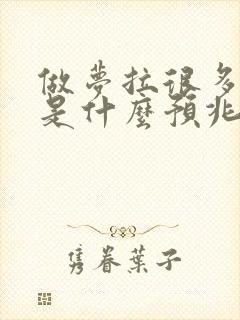 做夢拉很多
是什麼預兆
隽眷葉子